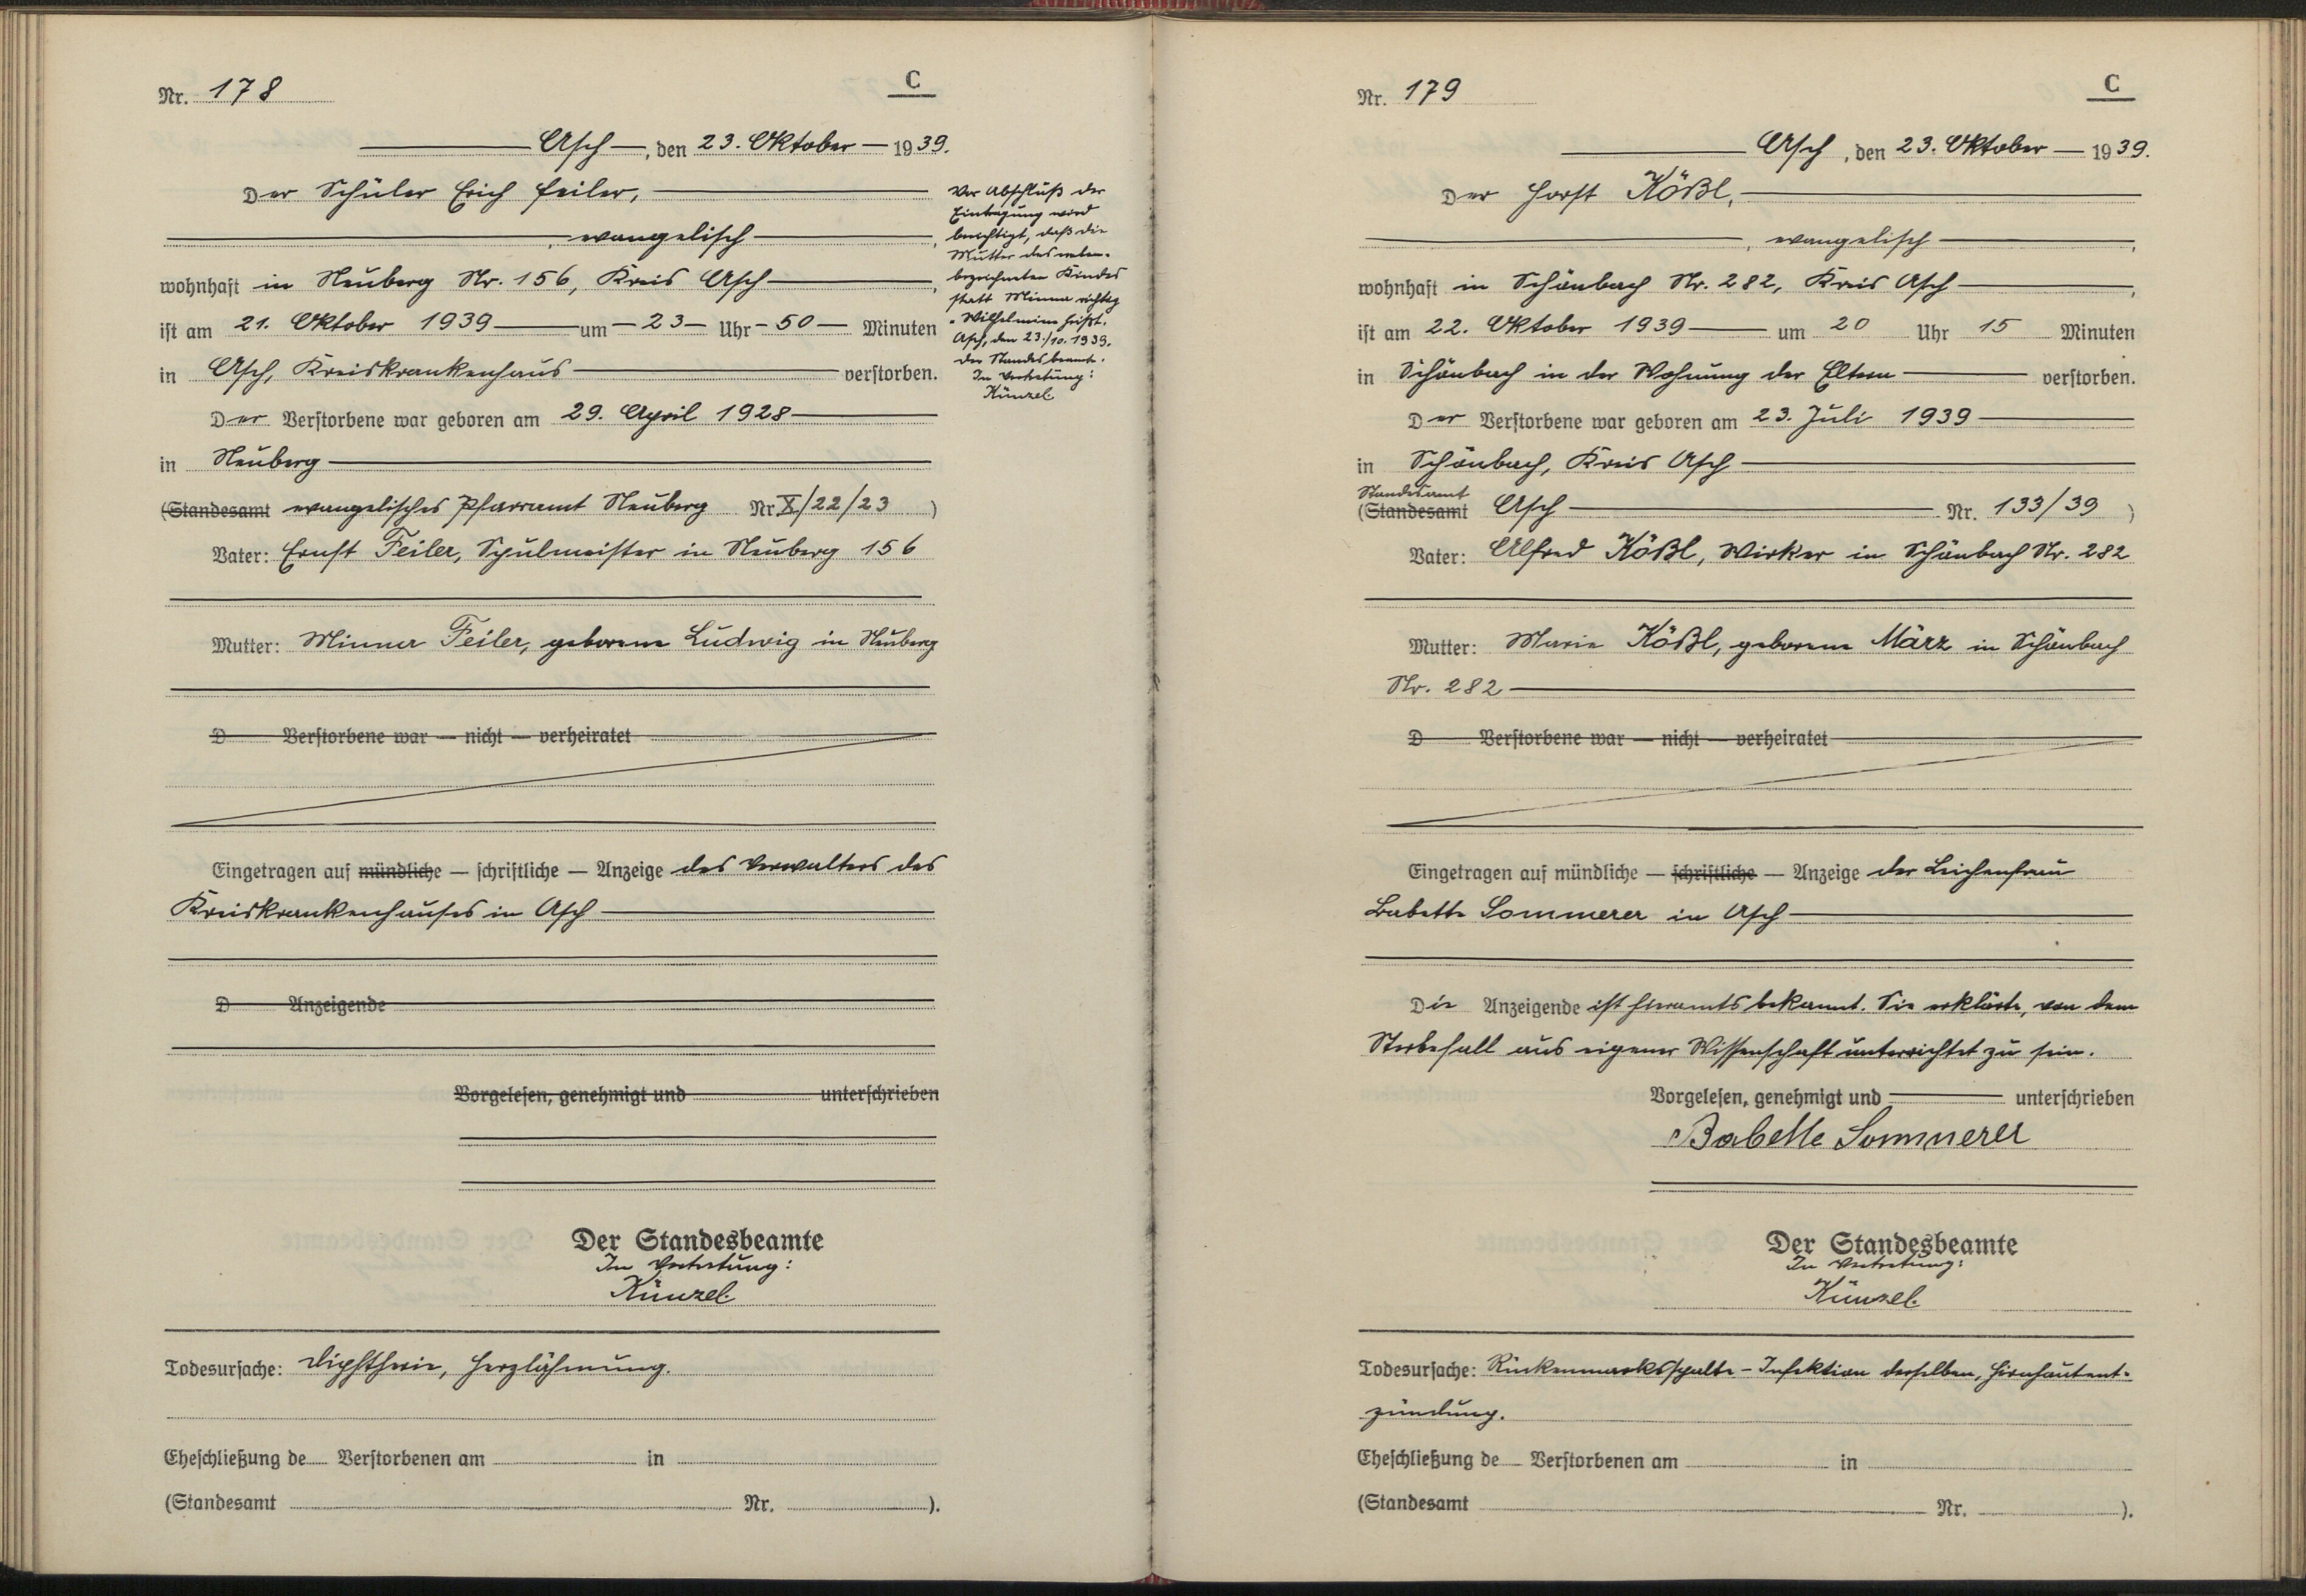 Nr. 178
C
Asch, den 23. Oktober 1939.
Der Schüler Erich Feiler,
, evangelisch,
wohnhaft in Neuberg Nr. 156, Kreis Asch,
ist am 21. Oktober 1939 um 23 Uhr 50 Minuten
in Asch, Kreiskrankenhaus verstorben.
Der Verstorbene war geboren am 29. April 1928
in Neuberg
(Standesamt evangelisches Pfarramt Neuberg Nr. X/22/23)
Vater: Ernst Feiler, Schulmeister in Neuberg 156
Mutter: Minna Feiler, geborene Ludwig in Neuberg
D Verstorbene war — nicht — verheiratet
Eingetragen auf mündliche — schriftliche — Anzeige des Verwalters des
Kreiskrankenhauses in Asch
D Anzeigende
Vorgelesen, genehmigt und unterschrieben
Der Standesbeamte
In Vertretung:
Künzel.
Todesursache: Diphtherie, Herzlähmung.
Eheschließung de Verstorbenen am in
(Standesamt Nr. ).
Vor Abschluß der
Eintragung wird
berichtigt, daß die
Mutter des neben-
bezeichneten Kindes
statt Minna richtig
"Wilhelmine heißt.
Asch, den 23./10. 1939.
Der Standesbeamte.
In Vertretung:
Künzel
Nr. 179
C
Asch, den 23. Oktober 1939.
Der Horst Kößl,
, evangelisch,
wohnhaft in Schönbach Nr. 282, Kreis Asch,
ist am 22. Oktober 1939 um 20 Uhr 15 Minuten
in Schönbach in der Wohnung der Eltern verstorben.
Der Verstorbene war geboren am 23. Juli 1939
in Schönbach, Kreis Asch
Standesamt
(Standesamt Asch Nr. 133/39)
Vater: Alfred Kößl, Wirker in Schönbach Nr. 282
Mutter: Marie Kößl, geborene März in Schönbach
Nr. 282
D Verstorbene war — nicht — verheiratet
Eingetragen auf mündliche — schriftliche — Anzeige der Leichenfrau
Babette Sommerer in Asch
Die Anzeigende ist hieramts bekannt. Sie erklärte, von dem
Sterbefall aus eigener Wissenschaft unterrichtet zu sein.
Vorgelesen, genehmigt und unterschrieben
Babette Sommerer
Der Standesbeamte
In Vertretung:
Künzel.
Todesursache: Rückenmarksspalte - Infektion derselben, Hirnhautent-
zündung.
Eheschließung de Verstorbenen am in
(Standesamt Nr. ).